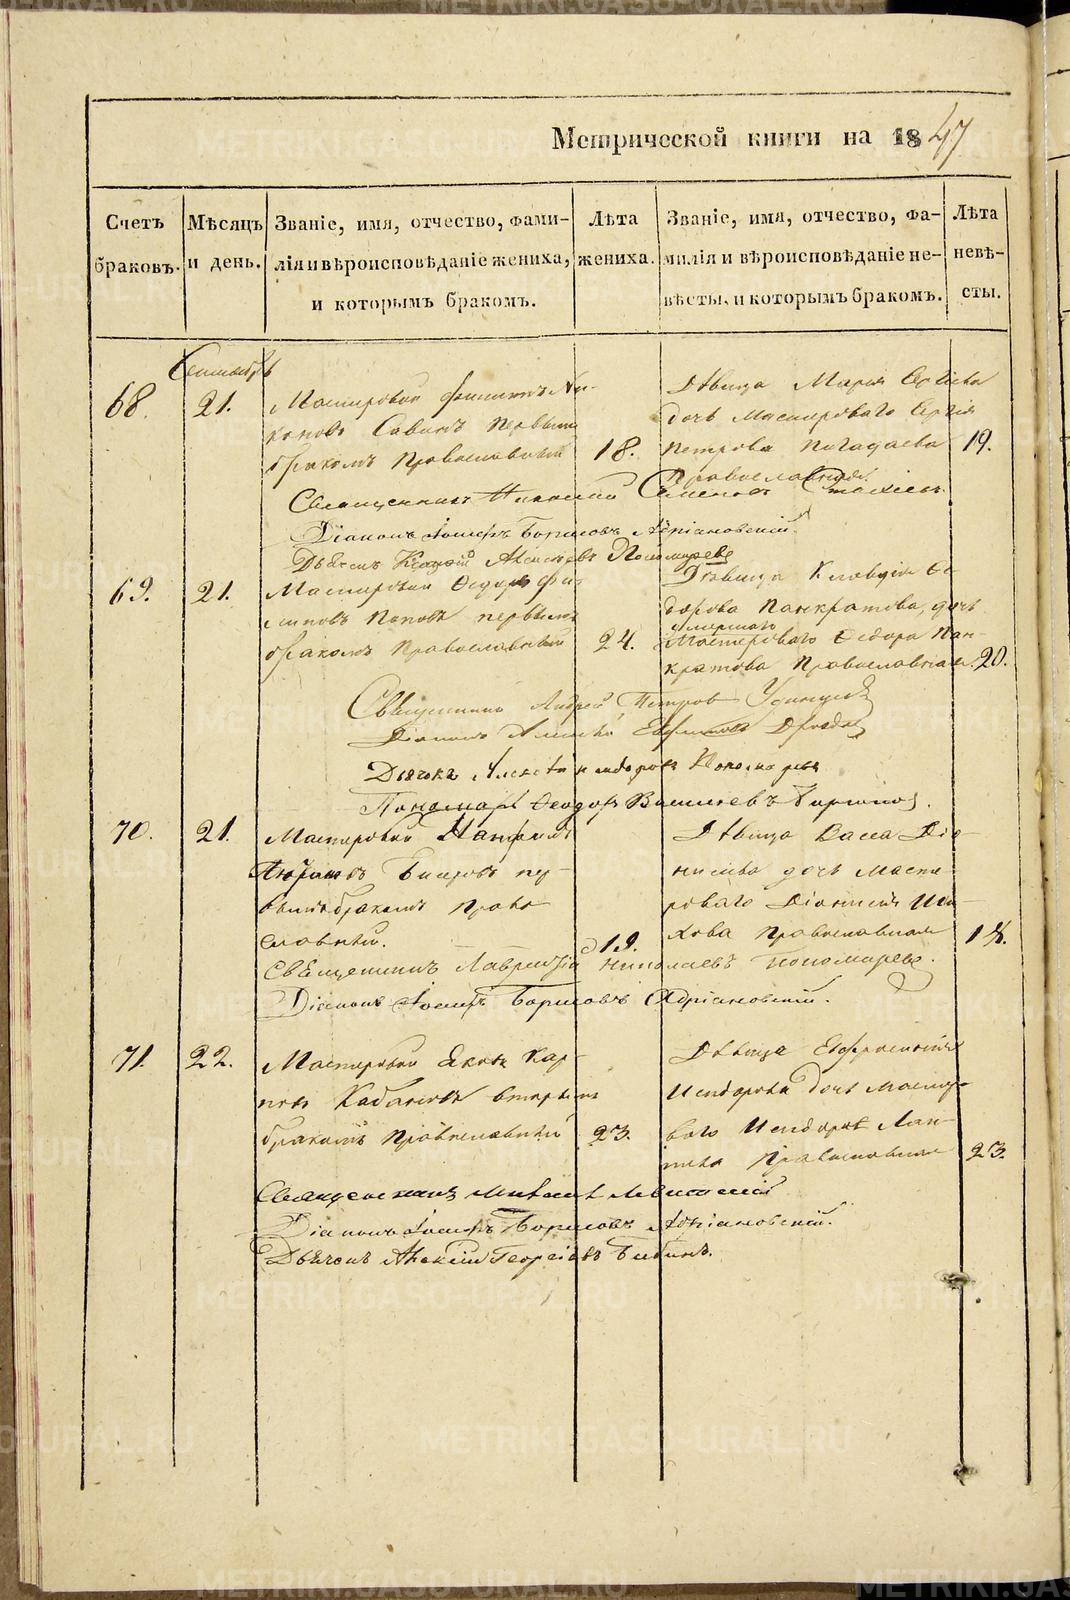 Метрической книги на 1847
Счетъ браковъ.
Мѣсяцъ и день.
Званіе, имя, отчество, фами-
лія и вѣроисповѣданіе жениха,
и которымъ бракомъ.
Лѣта
жениха.
Званіе, имя, отчество, фа-
милія и вѣроисповѣданіе не-
вѣсты, и которымъ бракомъ.
Лѣта
невѣ-
сты.
Сентябрь
68. 21.
Мастеровой Филиппъ Ни-
коновъ Савинъ первымъ
бракомъ Православный
18.
Дѣвица Марія Сергіева
дочь Мастероваго Сергія
Петрова Погадаева
Православная.
19.
Священникъ Николай Семеновъ
Діаконъ Іосифъ Борисовъ Адріановскій.
Дьячекъ Алексѣевъ Пономаревъ
69. 21.
Мастеровой Ѳедоръ Фи-
липовъ Поповъ первымъ
бракомъ Православный
24.
Дѣвица Клавдія Ѳе-
дорова Панкратова, дочь
умершаго
Мастероваго Ѳедора Пан-
кратова Православная.
20.
Священникъ Андрей Петровъ
Діаконъ
Дьячекъ Алексѣй Исидоровъ Пономаревъ
Пономарь Ѳеодоръ Васильевъ
70. 21.
Мастеровой
пер-
вымъ бракомъ Право
славный.
19.
Дѣвица Васса Діо-
нисіева дочь Масте
роваго Діонисія
хова Православная
18.
Священникъ Лаврентій Николаевъ Пономаревъ.
Діаконъ Іосифъ Борисовъ Адріановскій.
71. 22.
Мастеровой Яковъ Кар-
повъ Кабаковъ вторымъ
бракомъ Православный
23.
Дѣвица Евфросинія
Исидорова дочь Мастеро-
ваго Исидора Лап-
тева Православная
23.
Священникъ Михаилъ Левитскій
Діаконъ Іосифъ Борисовъ Адріановскій.
Дьячекъ Алексій Георгіевъ Бибинъ.
METRIKI.GASO-URAL.RU